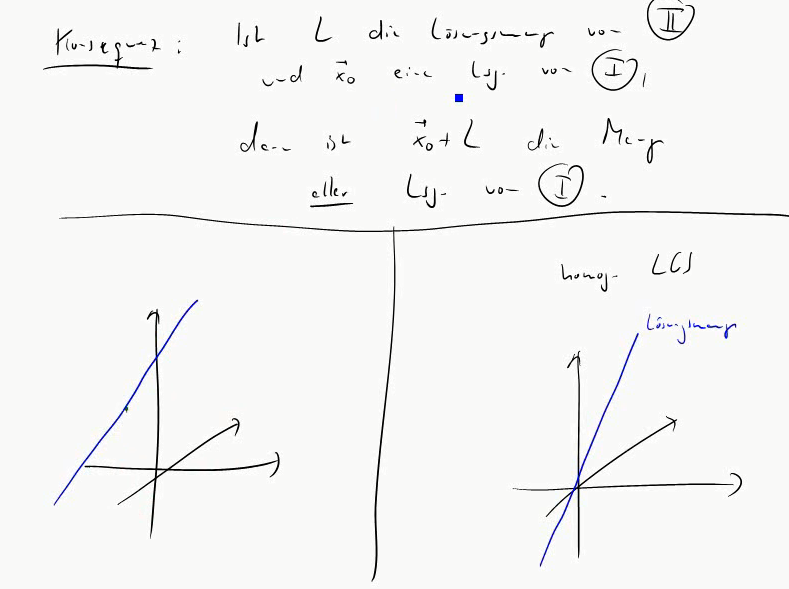 Konsequenz: Ist L die Lösungsmenge von II
und x⃗₀ eine Lsg. von I,
dann ist x⃗₀ + L die Menge
aller Lsg. von I.
homog. LGS
Lösungsmenge